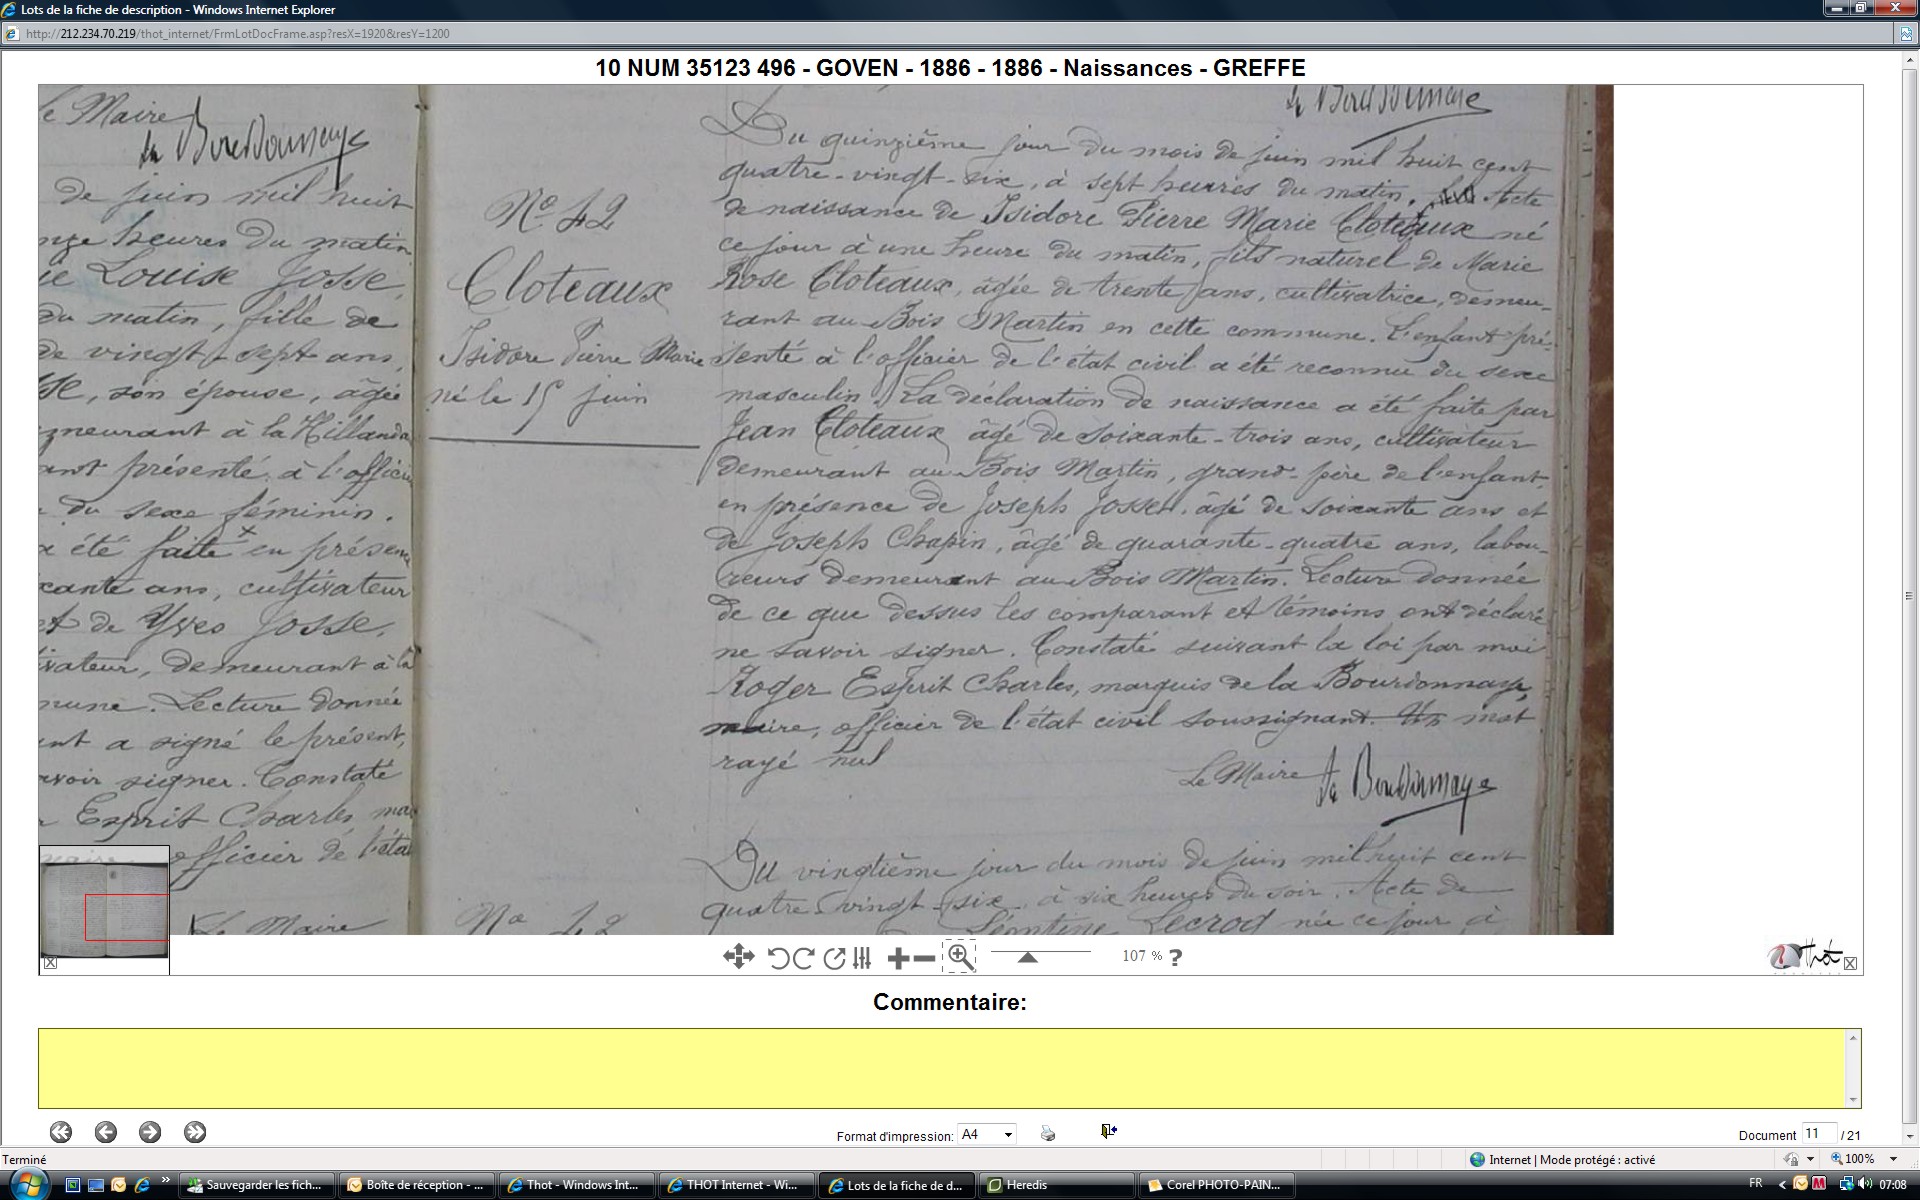 Lots de la fiche de description - Windows Internet Explorer
http://212.234.70.219/thot_internet/FrmLotDocFrame.asp?resX=1920&resY=1200
10 NUM 35123 496 - GOVEN - 1886 - 1886 - Naissances - GREFFE
Le Maire
de juin mil huit
heures du matin
Louise Josse,
du matin, fille de
de vingt-sept ans,
son épouse, âgée
à la Hillanda
présenté à l'offici
du sexe féminin.
a été faite en présen
ans, cultivateur
et de Yves Josse,
demeurant à la
Lecture donnée
a signé le présent,
signer. Constaté
Esprit Charles, mar
officier de l'éta
Le Maire
No 42
Cloteaux
Isidore Pierre Marie
né le 15 juin
No 42
Du quinzième jour du mois de juin mil huit cent
quatre-vingt-six, à sept heures du matin. Acte
de naissance de Isidore Pierre Marie Cloteaux né
ce jour à une heure du matin, fils naturel de Marie
Rose Cloteaux, âgée de trente ans, cultivatrice, demeu-
rant au Bois Martin en cette commune. L'enfant pré-
senté à l'officier de l'état civil a été reconnu du sexe
masculin. La déclaration de naissance a été faite par
Jean Cloteaux âgé de soixante-trois ans, cultivateur
demeurant au Bois Martin, grand-père de l'enfant,
en présence de Joseph Josset, âgé de soixante ans et
de Joseph Chapin, âgé de quarante-quatre ans, labou-
reurs demeurant au Bois Martin. Lecture donnée
de ce que dessus les comparant et témoins ont déclaré
ne savoir signer. Constaté suivant la loi par moi
Roger Esprit Charles, marquis de la Bourdonnaye,
maire, officier de l'état civil soussignant. Un mot
rayé nul
Le Maire de Bourdonnaye
Du vingtième jour du mois de juin mil huit cent
quatre-vingt-six, à six heures du soir. Acte de
Léontine Lecroq née ce jour à
107 % ?
Thot
Commentaire:
Format d'impression: A4
Document 11 / 21
Terminé
Internet | Mode protégé : activé
100%
Sauvegarder les fich...
Boîte de réception - ...
Thot - Windows Int...
THOT Internet - Wi...
Lots de la fiche de d...
Heredis
Corel PHOTO-PAIN...
FR
07:08